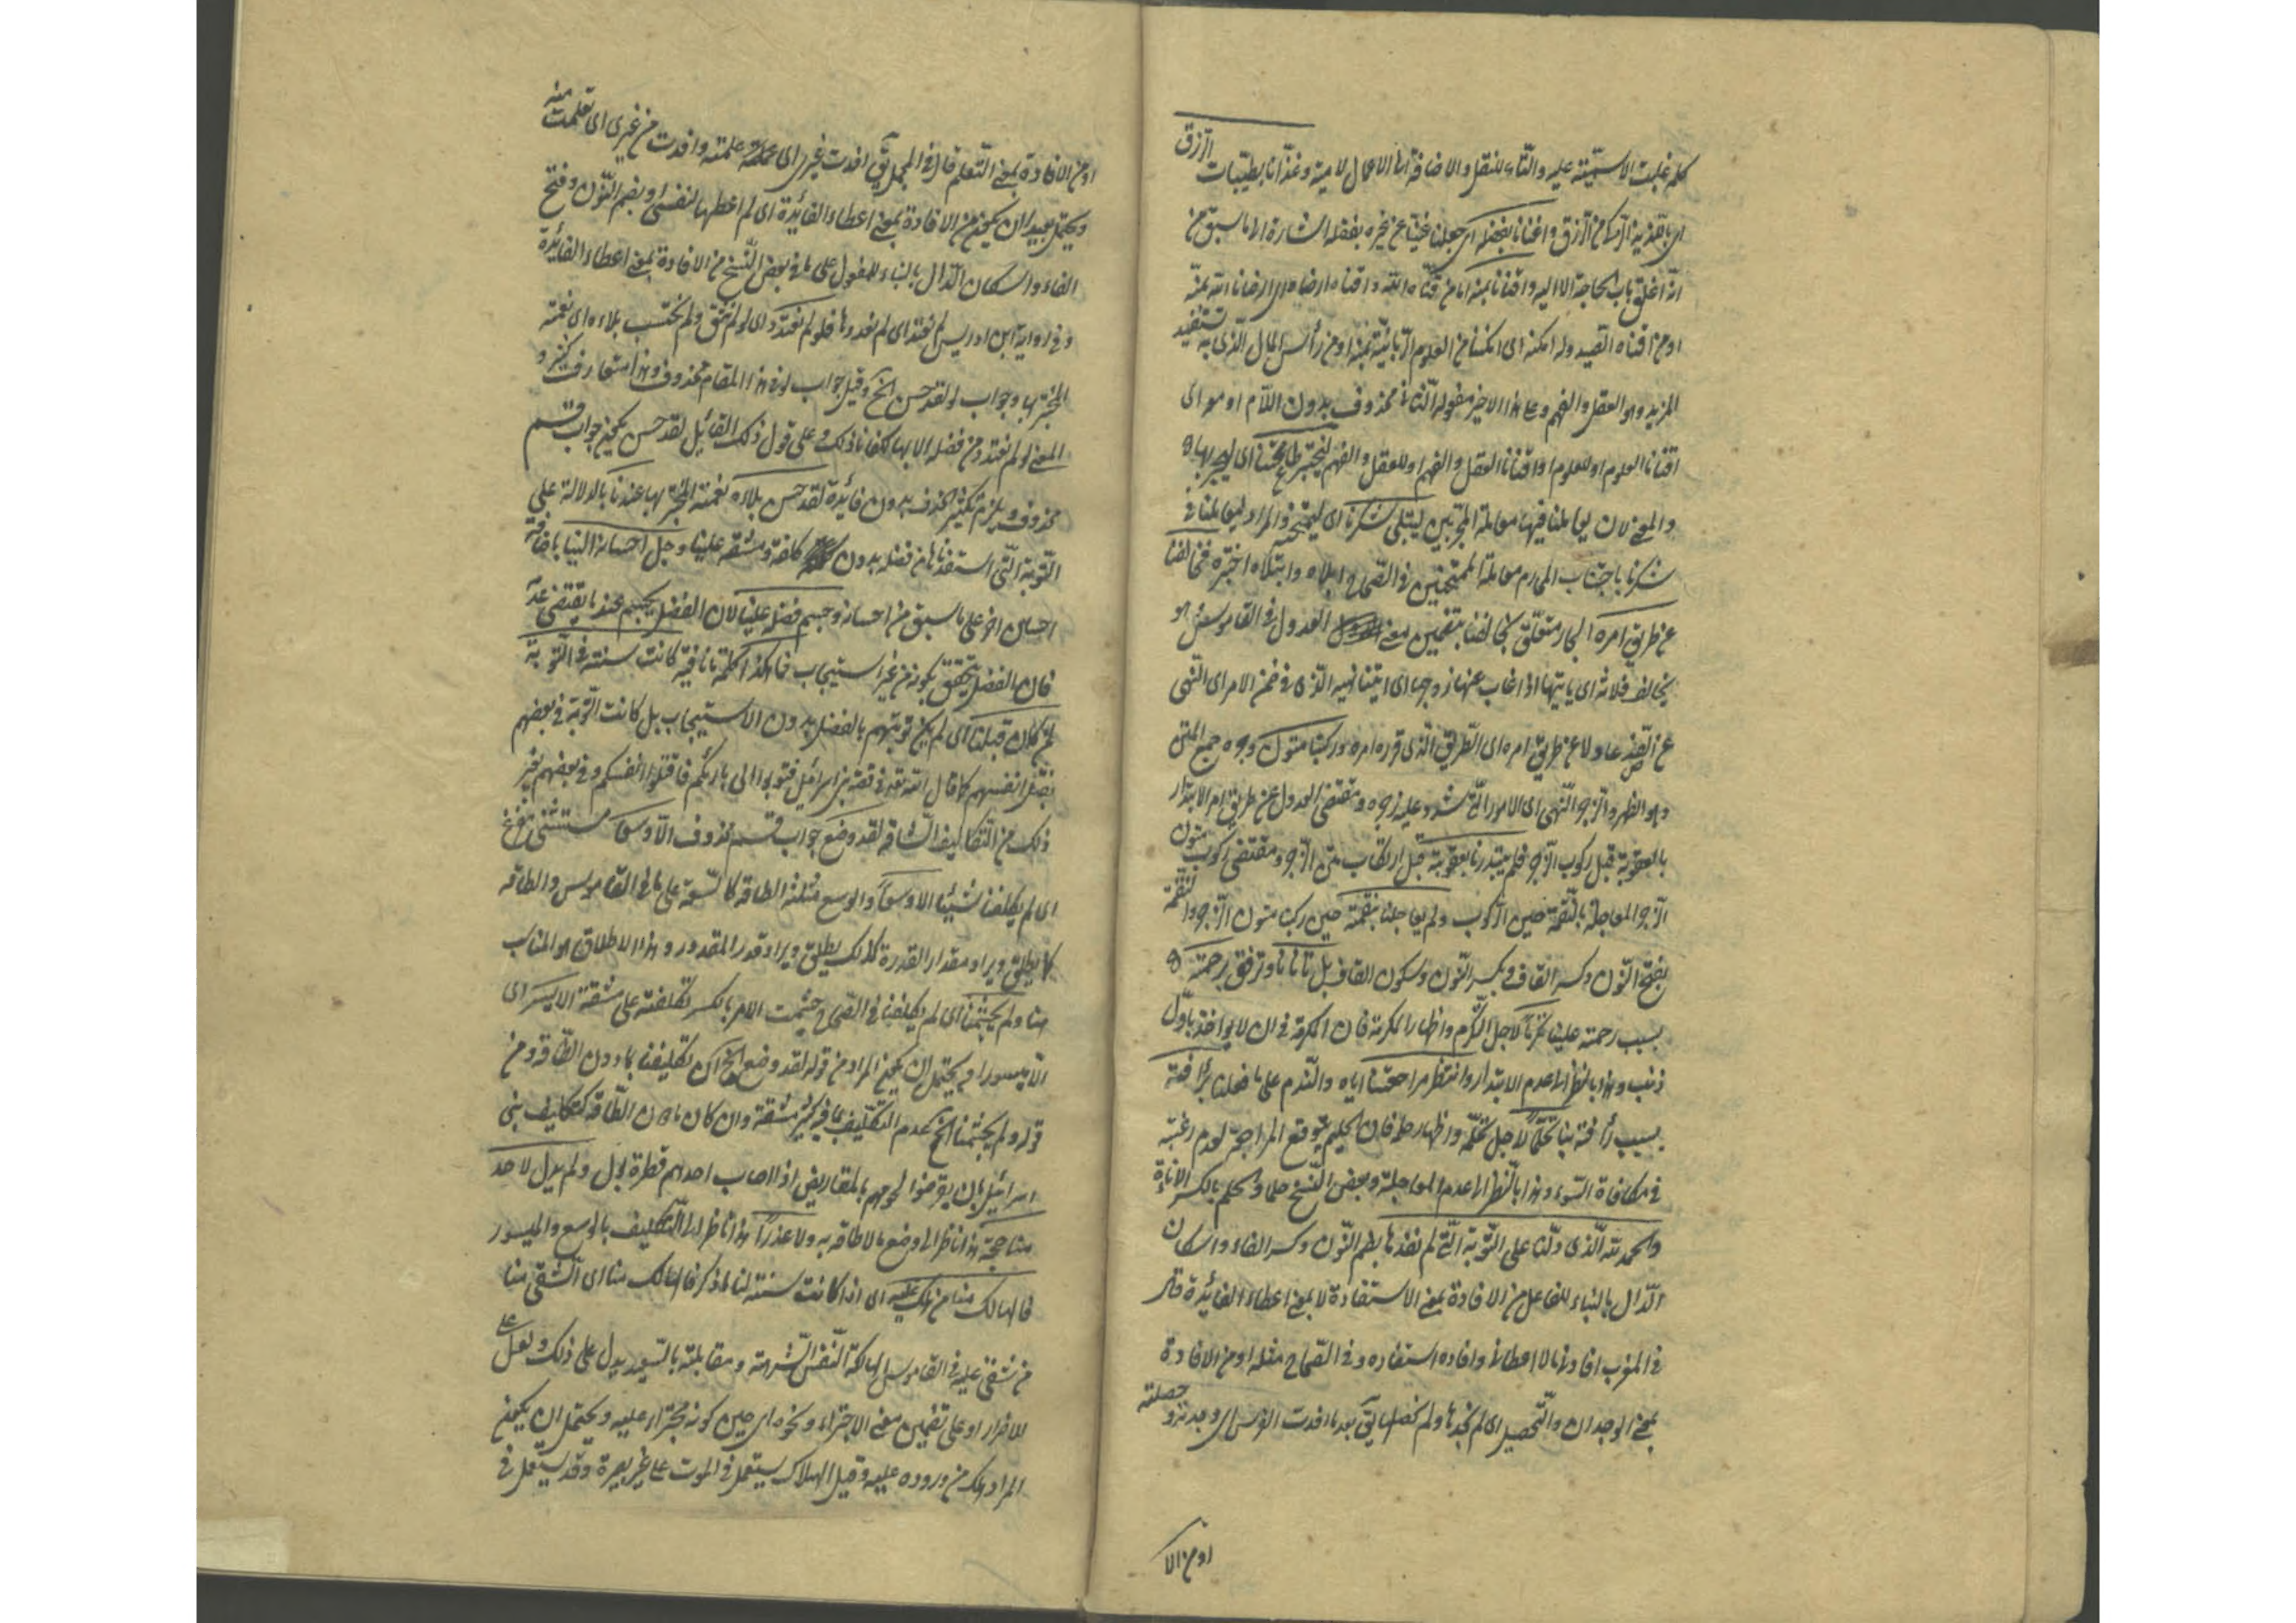 كلمه غلبت الاسمية عليه والتاء للنقل والاضافة الى الاعمال لامية وغذانا بطيبات الرزق
اى بالغذية الرزق واغنانا بفضله اى جعلنا غنيا عن غيره بفضله اشارة الى ما سبق من
انه اغلق باب الحاجة الا اليه واقنانا بمنه اما من قناه الله واقناه ارضاه اى ارضانا الله بمنه
او من اقناه الصيد وله امكنه اى امكننا من العلوم الربانية بمنه او من رأس المال الذى به تستفيد
المزيد وهو العقل والفهم وعلى هذا الاخير مفعوله الثانى محذوف بدون اللام او هو اى
اقنانا العلوم او للعلوم او اقنانا العقل والفهم او للعقل والفهم ليختبر طاعتنا اى ليجربها
والمعنى لان يعاملنا فيها معاملة المجربين ليبتلى شكرنا اى ليمتحنه والمراد ليعاملنا فى
شكرنا باجتناب المحارم معاملة الممتحنين فى الصحاح ابلاه وابتلاه اختبره فخالفنا
عن طريق امره الجار متعلق بخالفنا بتضمين معنى العدول فى القاموس هو
يخالف فلانة اى ياتيها اذا غاب عنها زوجها اى اتينا نهيه الذى فى ضمن الامر اى النهى
عن الضد عادلا عن طريق امره اى الطريق الذى قرره امره وركبنا متون زجره جمع المتن
وهو الظهر والزجر النهى اى الامور التى شدد عليه زجره ومقتضى العدول عن طريق امر الابتدار
بالعقوبة قبل ركوب الزجر فلم يبتدرنا بعقوبة قبل ارتكاب متن الزجر ومقتضى ركوب متون
الزجر المعاجلة بالنقمة حين الركوب ولم يعاجلنا بنقمة حين ركبنا متون الزجر والنقمة
بفتح النون وكسر القاف وبكسر النون وسكون القاف بل تأنانا وترفق برحمته
بسبب رحمته علينا تكرما لاجل التكرم واظهار المكرمة فان المكرمة فى ان لا يواخذ باول
ذنب وهذا بالنظر الى عدم الابتدار وانتظر مراجعتنا اياه والندم على ما فعلنا برأفته
بسبب رأفته بنا حلما لاجل تحلمه واظهار حلمه فان الحليم يتوقع المراجعة لعدم رغبته
فى مكافاة السوء وهذا بالنظر الى عدم المعاجلة وبعض النسخ حلما والحلم بالكسر الاناءة
والحمد لله الذى دلنا على التوبة التى لم نفدها بضم النون وكسر الفاء واسكان
الدال بالبناء للفاعل من الافادة بمعنى الاستفادة لا بمعنى اعطاء الفائدة قال
فى المغرب افادنى مالا اعطانى وافاده استفاده وفى الصحاح مثله او من الافادة
بمعنى الوجدان والتحصيل اى لم نجدها ولم نحصلها يق بعد ما افدت الفرس اى وجدته وحصلته
او من الا
او من الافادة بمعنى التعلم قال فى المجمل يق افدت غيرى اى علمته وافدت من غيرى اى تعلمت منه
ويحتمل بعيدا ان يكون من الافادة بمعنى اعطاء الفائدة اى لم اعطها لنفسى او بضم النون وفتح
الفاء واسكان الدال بالبناء للمفعول على ما فى بعض النسخ من الافادة بمعنى اعطاء الفائدة
وفى رواية ابن ادريس لم نعتد اى لم نعدها فلو لم نعتدد اى لو لم نثق ولم نحتسب بلاءه اى نعمته
المختبر بها وجواب لو لقد حسن الخ وقيل جواب لو فى هذا المقام محذوف وهذا متعارف كثير و
المعنى لو لم نعتدد من فضله الا بها لكفانا ذلك وعلى قول ذلك القائل لقد حسن يكون جواب قسم
محذوف ويلزم تكثير الحذف بدون فائدة لقد حسن بلاؤه نعمته المختبر بها عندنا بالدلالة على
التوبة التى استفدناها من فضله بدون كلفة ومشقة علينا وجل احسانه الينا باضافة
احسان اخر على ما سبق من احسانه وجسم فضله علينا لان الفضل يجسم عند ما يقتضى عدم
فان الفضل يتحقق بكونه من غير استيجاب فما هكذا كلمة ما نافية كانت سنته فى التوبة
لمن كان قبلنا اى لم يكن توبتهم بالفضل بدون الاستيجاب بل كانت التوبة فى بعضهم
بقتل انفسهم كما قال الله تعه فى قصة بنى اسرائيل فتوبوا الى بارئكم فاقتلوا انفسكم وفى بعضهم بغير
ذلك من التكاليف الشاقة لقد وضع جواب قسم محذوف الا وسعا مستثنى مفرغ
اى لم يكلفنا شيئا الا وسعا والوسع مثلثة الطاقة كالسعة على ما فى القاموس والطاقه
كما يطلق ويراد مقدار القدرة كذلك يطلق ويراد قدر المقدور وهذا الاطلاق هو المناسب
هنا ولم يجشمنا اى لم يكلفنا فى الصحاح جشمت الامر بالكسر تكلفته على مشقة الا يسرا اى
الا ميسورا ويحتمل ان يكون المراد من قوله لقد وضع الخ ان تكليفنا بما دون الطاقة ومن
قوله ولم يجشمنا الخ عدم التكليف بما فيه كثير مشقة وان كان مادون الطاقة كتكاليف بنى
اسرائيل بان يقرضوا لحومهم بالمقاريض اذا اصاب احدهم قطرة بول ولم يدل لاحد
منا حجة هذا ناظر الى وضع ما لا طاقة به ولا عذرا هذا ناظر الى التكليف بالوسع والميسور
فالهالك منا من هلك عليه اى اذا كانت سنته لنا ما ذكر فالهالك منا اى الشقى منا
من شقى عليه فى القاموس الهالكة النفس الشرهة ومقابلته بالسعيد يدل على ذلك ولعل على
للاضرار او على تضمين معنى الاجتراء ونحوه اى حين كونه مجتراء عليه ويحتمل ان يكون
المراد هلك من وروده عليه وقيل الهلاك يستعمل فى الموت على غير بصيرة وقد يستعمل فى